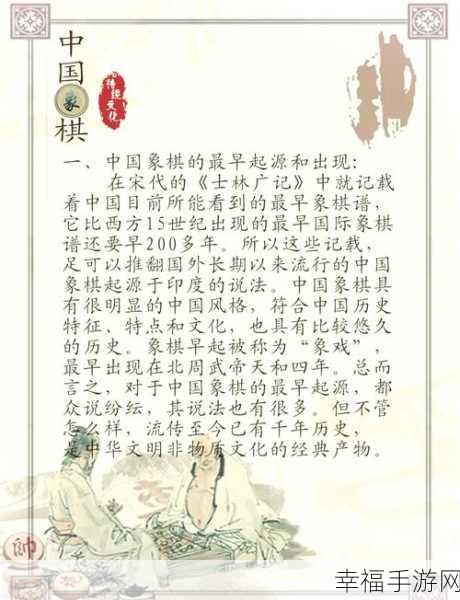 中国象棋
传统文化
一、中国象棋的最早起源和出现:
在宋代的《士林广记》中就记载
着中国目前所能看到的最早象棋谱,
它比西方15世纪出现的最早国际象棋
谱还要早200多年。所以这些记载,
足可以推翻国外长期以来流行的中国
象棋起源于印度的说法。中国象棋具
有很明显的中国风格,符合中国历史
特征、特点和文化,也具有比较悠久
的历史。象棋早起被称为“象戏”,
最早出现在北周武帝天和四年。总而
言之,对于中国象棋的最早起源,都
众说纷纭,其说法也有很多。但不管
怎么样,流传至今已有千年历史,
是中华文明非物质文化的经典产物。
帥
幸福手游网